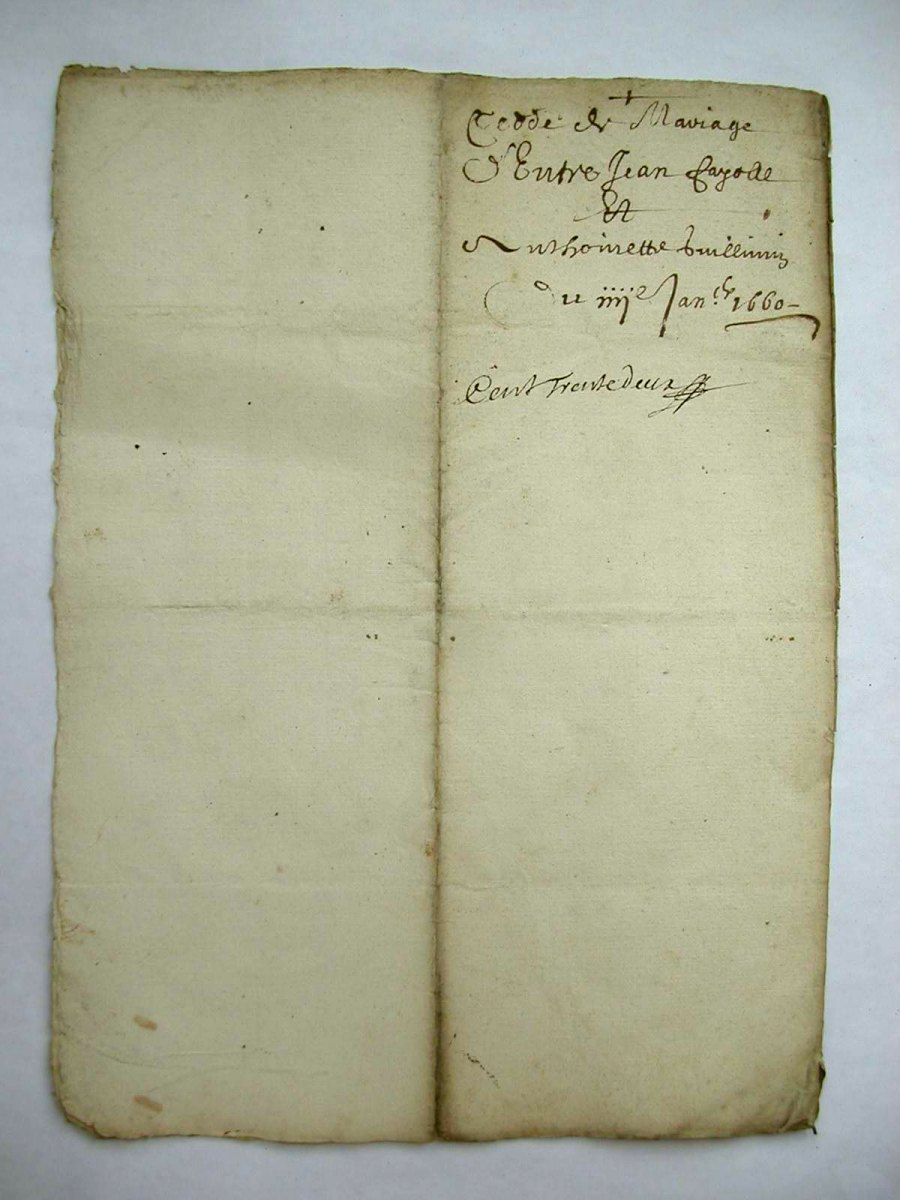 Cedde de Mariage
d'Entre Jean Cayolle
Et
Anthoinette Guillimin
Du iiije Jan.er 1660
Cent Trente deux